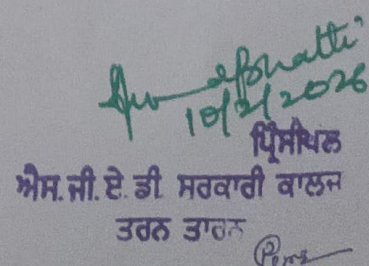 10/2/2026
ਪ੍ਰਿੰਸੀਪਲ
ਐਸ. ਜੀ. ਏ. ਡੀ ਸਰਕਾਰੀ ਕਾਲਜ
ਤਰਨ ਤਾਰਨ